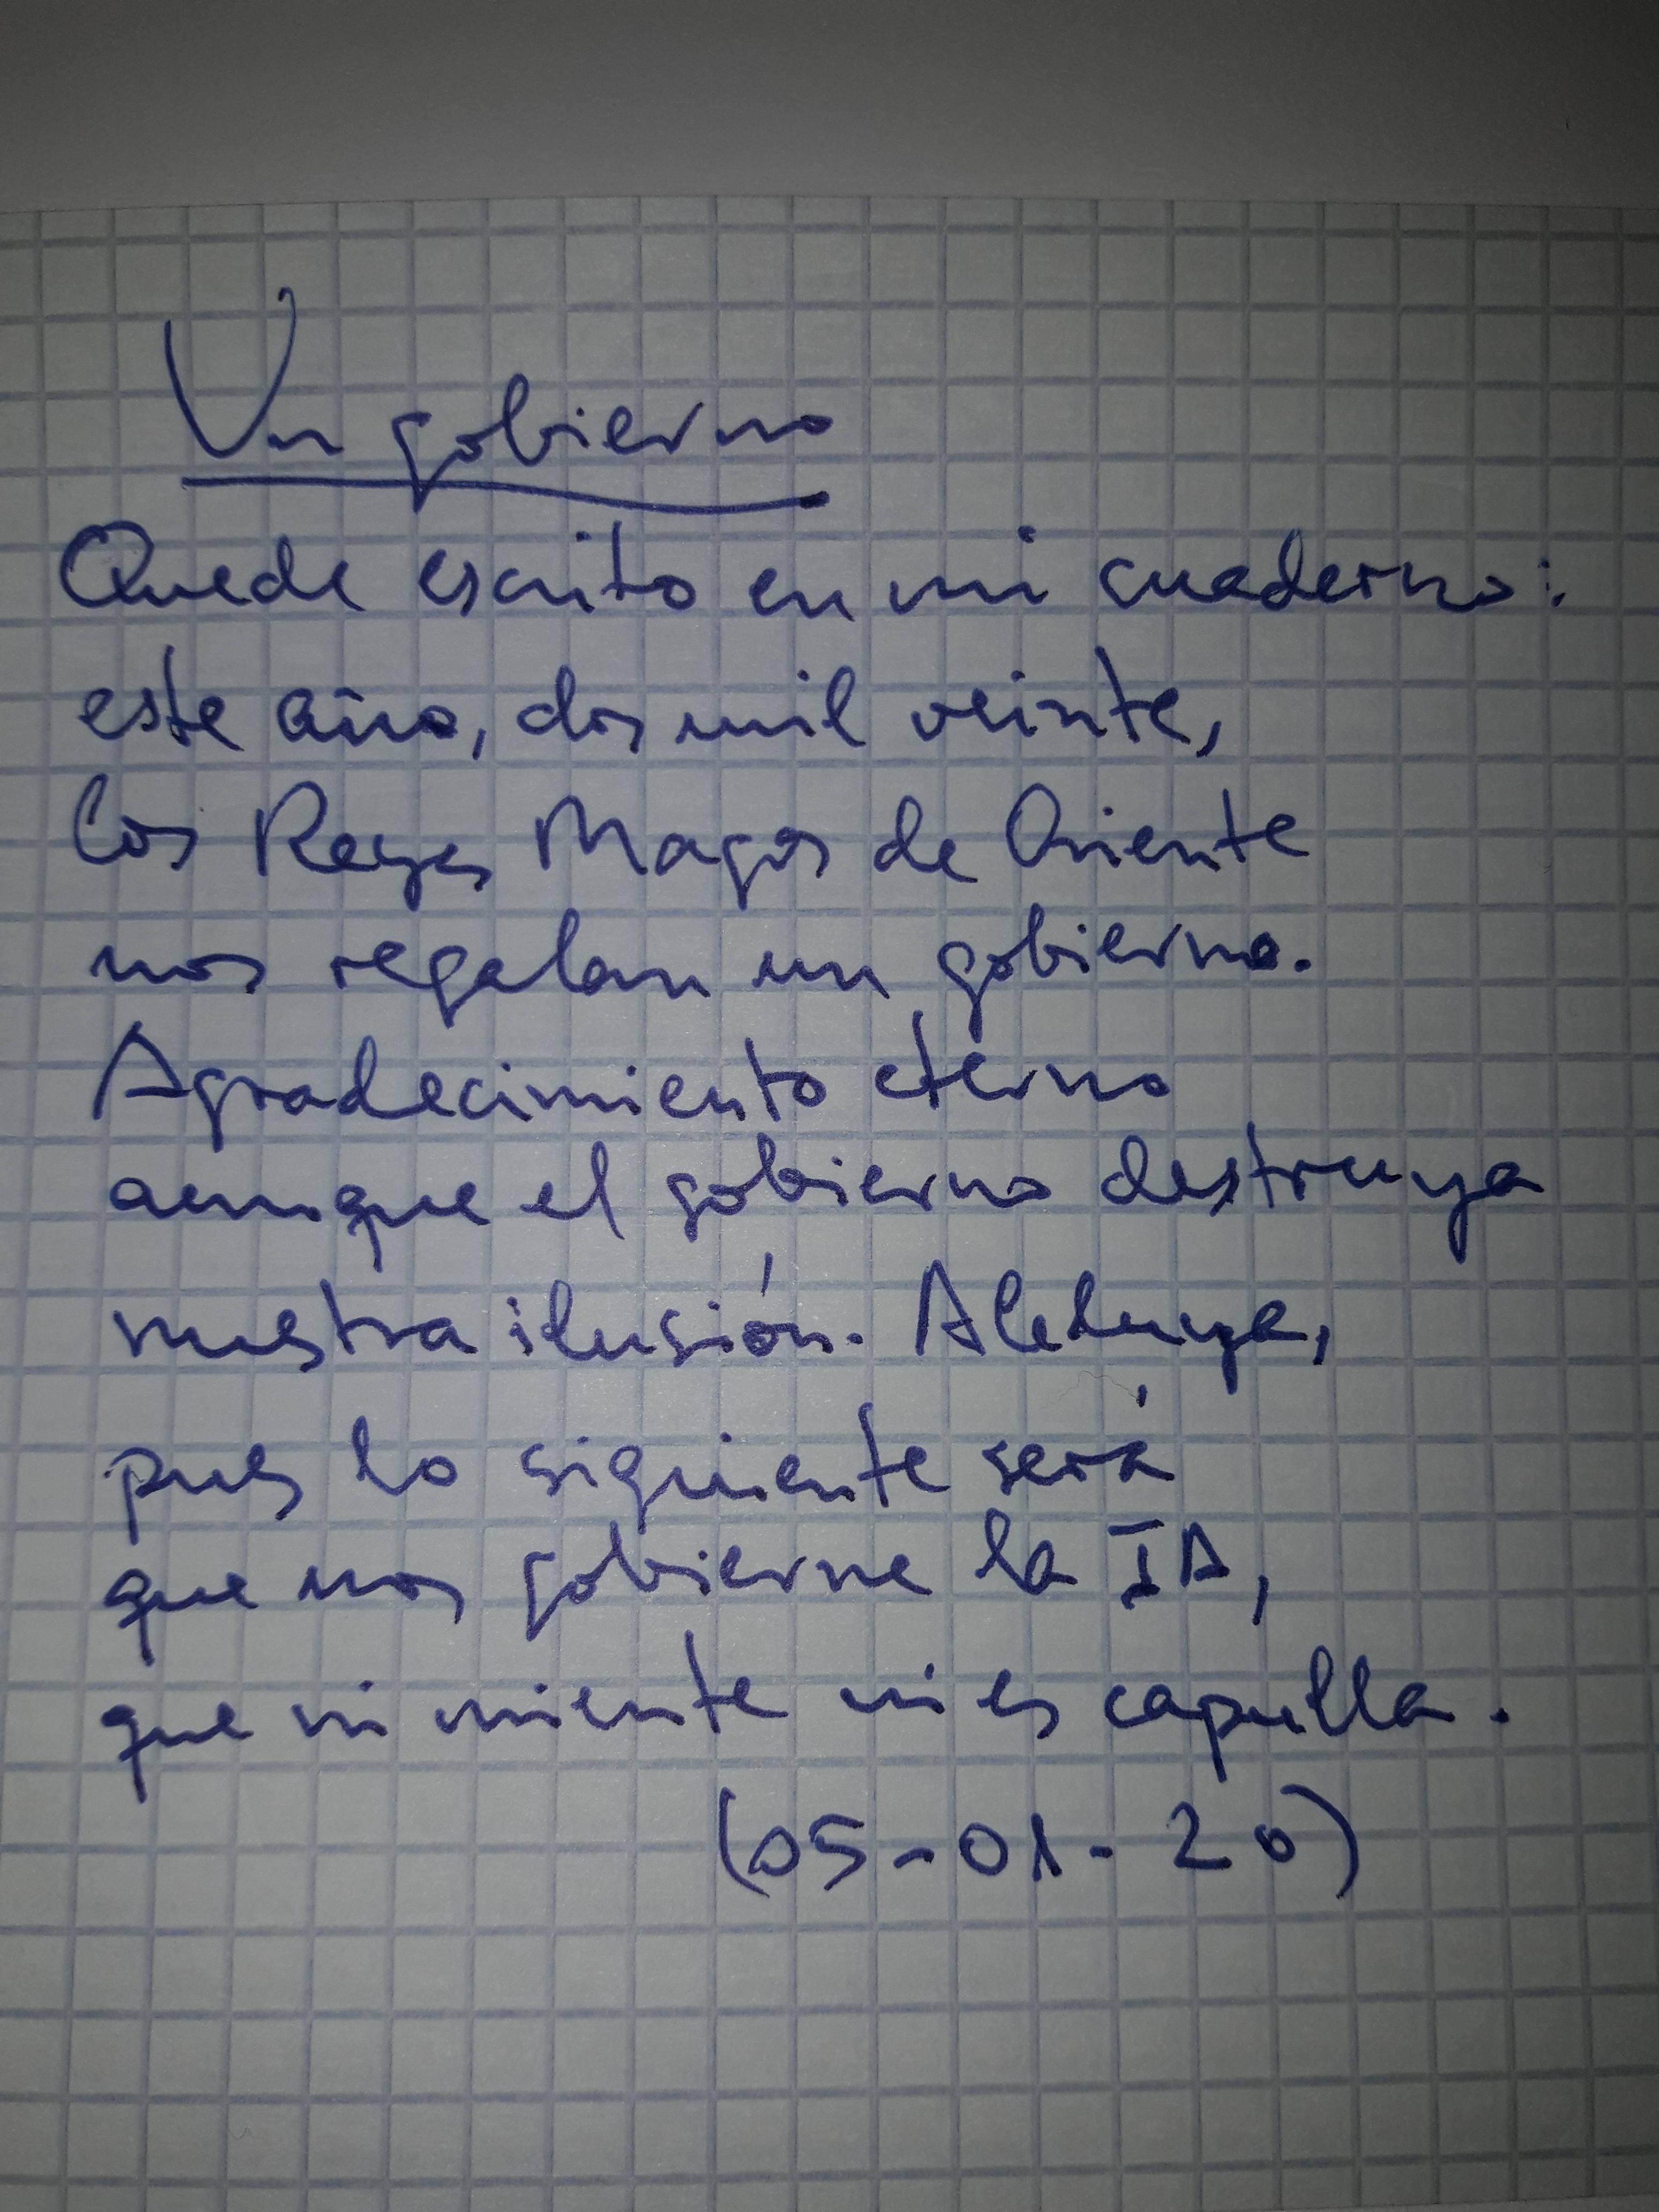 Un gobierno
Quede escrito en mi cuaderno:
este año, dos mil veinte,
los Reyes Magos de Oriente
nos regalan un gobierno.
Agradecimiento eterno
aunque el gobierno destruya
nuestra ilusión. Aleluya,
pues lo siguiente será
que nos gobierne la IA,
que ni miente ni es capulla.
(05-01-20)